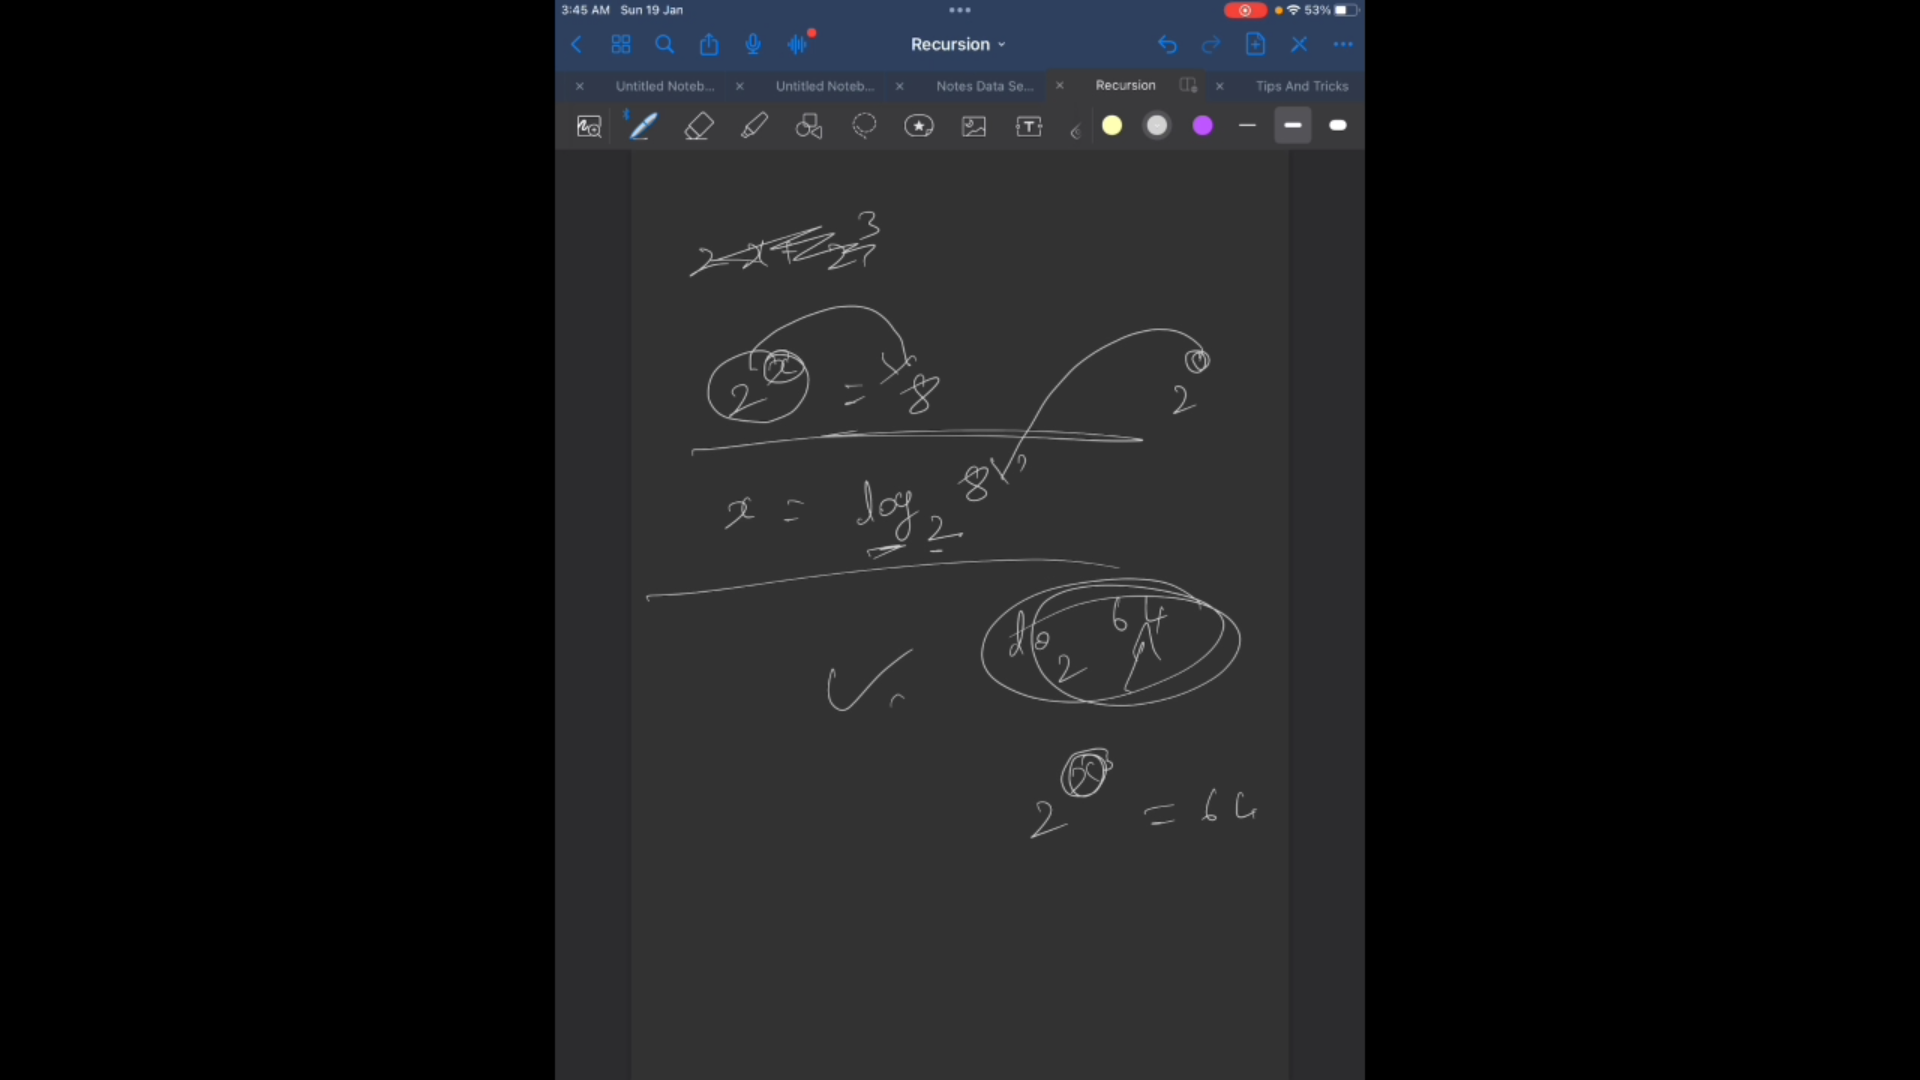 3:45 AM Sun 19 Jan 53%
Recursion
Untitled Noteb... Untitled Noteb... Notes Data Se... Recursion Tips And Tricks
T
2^x = 8
2
x = log_2 8
64
2
2^x = 64